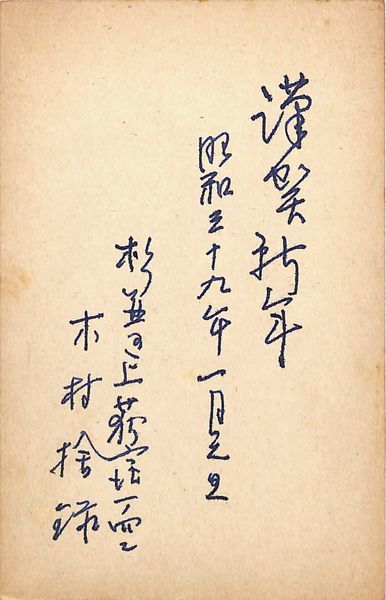 謹賀新年
昭和三十九年一月元旦
杉並区上荻窪一の
木村捨録